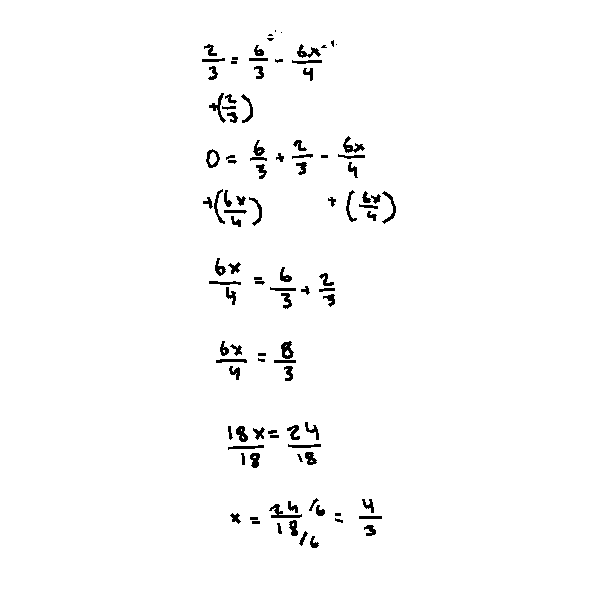 2/3 = 6/3 - 6x/4
+(2/3)
0 = 6/3 + 2/3 - 6x/4
+(6x/4) + (6x/4)
6x/4 = 6/3 + 2/3
6x/4 = 8/3
18x/18 = 24/18
x = 24/18 /6 /6 = 4/3